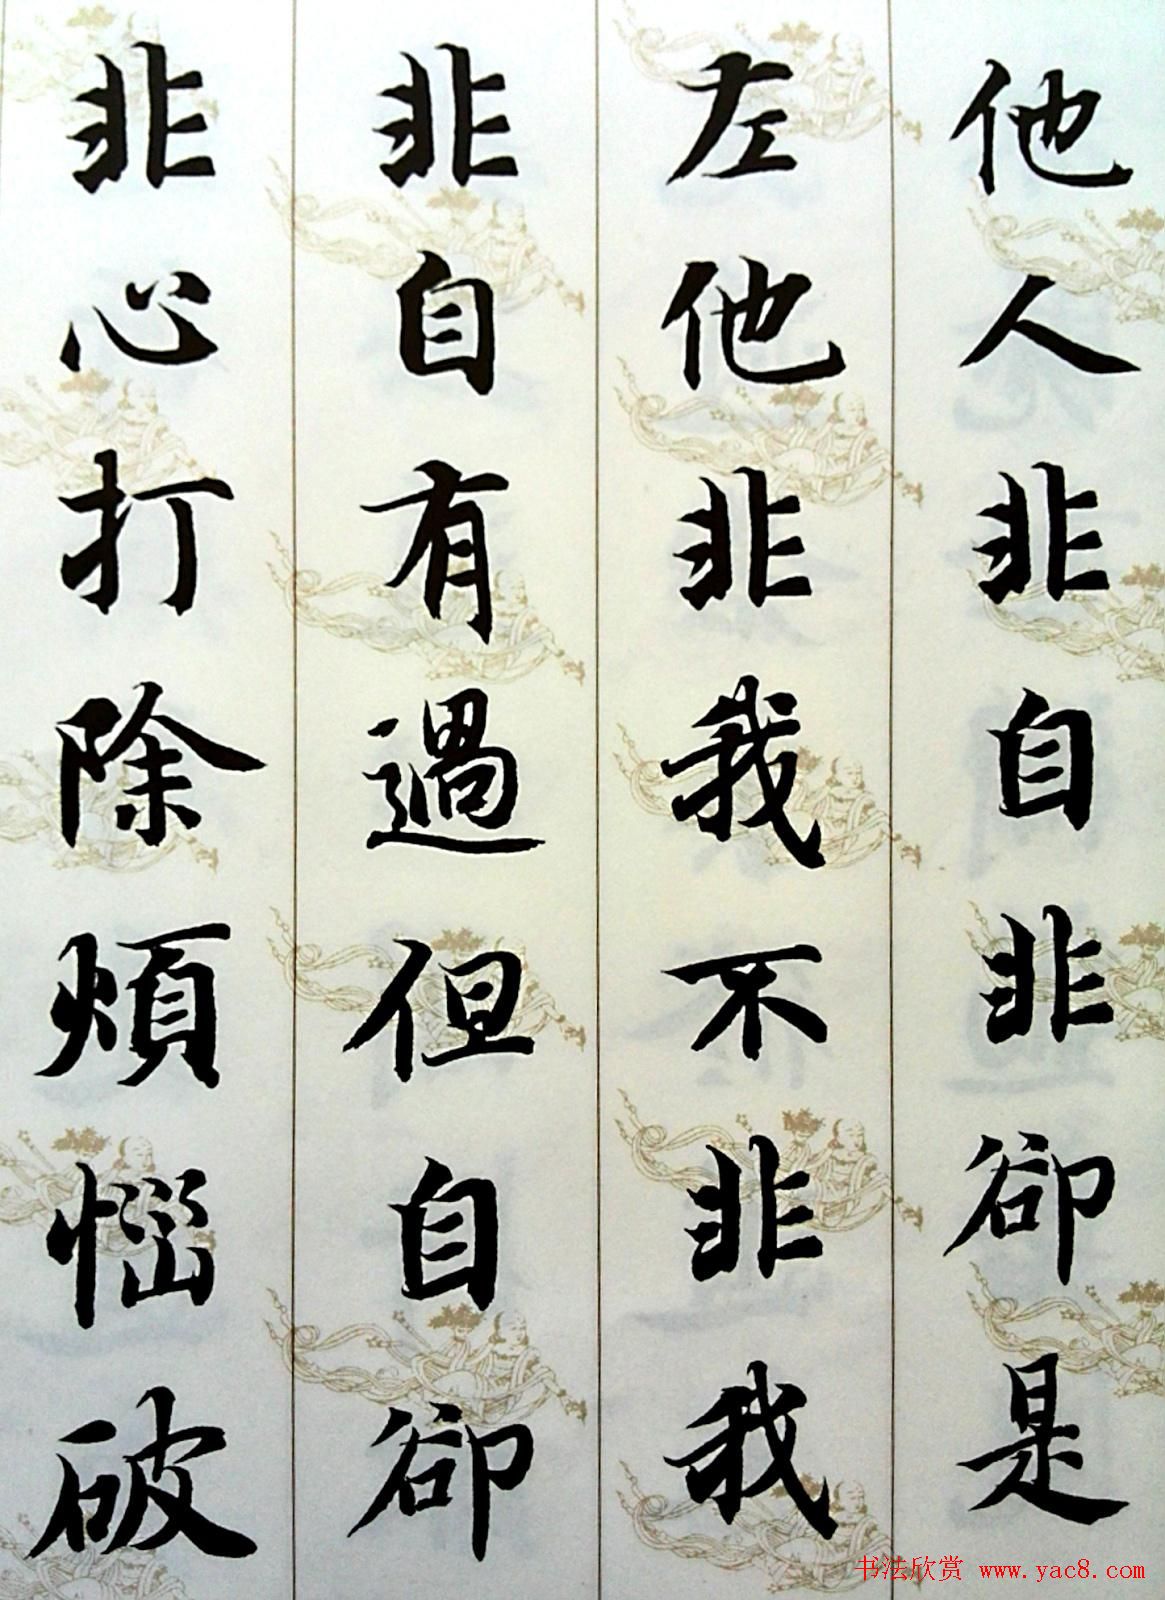 他人非自非卻是
左他非我不非我
非自有過但自卻
非心打除煩惱破
书法欣赏 www.yac8.com